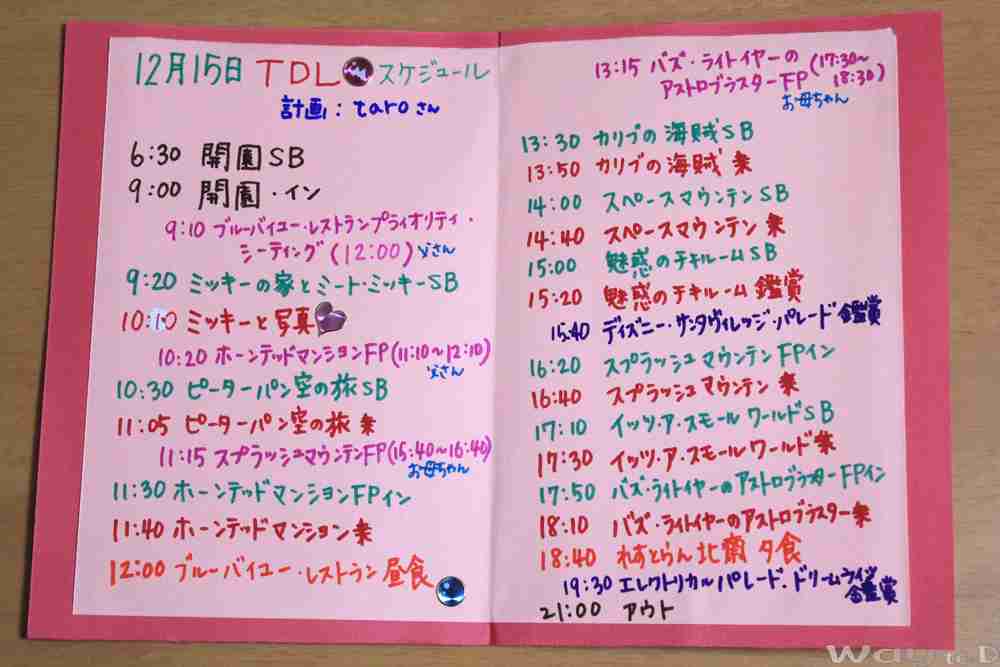 12月15日 TDL スケジュール
計画:taroさん
6:30 開園SB
9:00 開園・イン
9:10 ブルーバイユー・レストランプライオリティ・
シーティング(12:00) 父さん
9:20 ミッキーの家とミート・ミッキーSB
10:10 ミッキーと写真
10:20 ホーンテッドマンションFP(11:10~12:10)
父さん
10:30 ピーターパン空の旅SB
11:05 ピーターパン空の旅 乗
11:15 スプラッシュマウンテンFP(15:40~16:40)
お母ちゃん
11:30 ホーンテッドマンションFPイン
11:40 ホーンテッドマンション乗
12:00 ブルーバイユー・レストラン 昼食
13:15 バズ・ライトイヤーの
アストロブラスターFP(17:30~
18:30)
お母ちゃん
13:30 カリブの海賊SB
13:50 カリブの海賊 乗
14:00 スペースマウンテンSB
14:40 スペースマウンテン 乗
15:00 魅惑のチキルームSB
15:20 魅惑のチキルーム 鑑賞
15:40 ディズニー・サンタヴィレッジ・パレード 鑑賞
16:20 スプラッシュマウンテンFPイン
16:40 スプラッシュマウンテン 乗
17:10 イッツ・ア・スモールワールドSB
17:30 イッツ・ア・スモールワールド乗
17:50 バズ・ライトイヤーのアストロブラスターFPイン
18:10 バズ・ライトイヤーのアストロブラスター乗
18:40 れすとらん北齋 夕食
19:30 エレクトリカルパレード・ドリームライツ
鑑賞
21:00 アウト